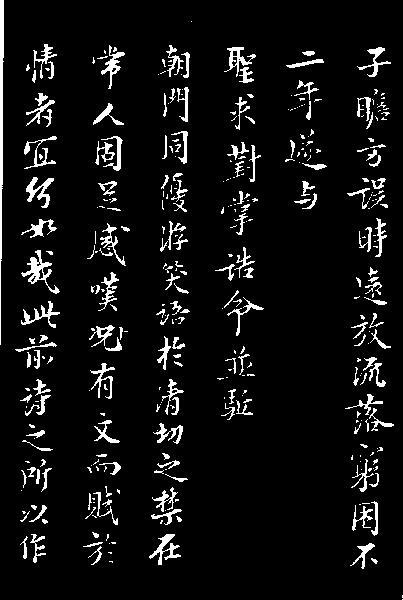 子瞻方誤時遠放流落窮困不
二年遂与
聖求對掌誥命並駈
朝門同優游笑語於清切之禁在
常人固足感嘆况有文而賦於
情者宜何如哉此前詩之所以作